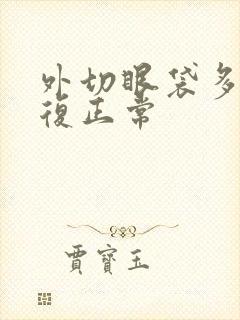 外切眼袋多
復正常
賈寶玉